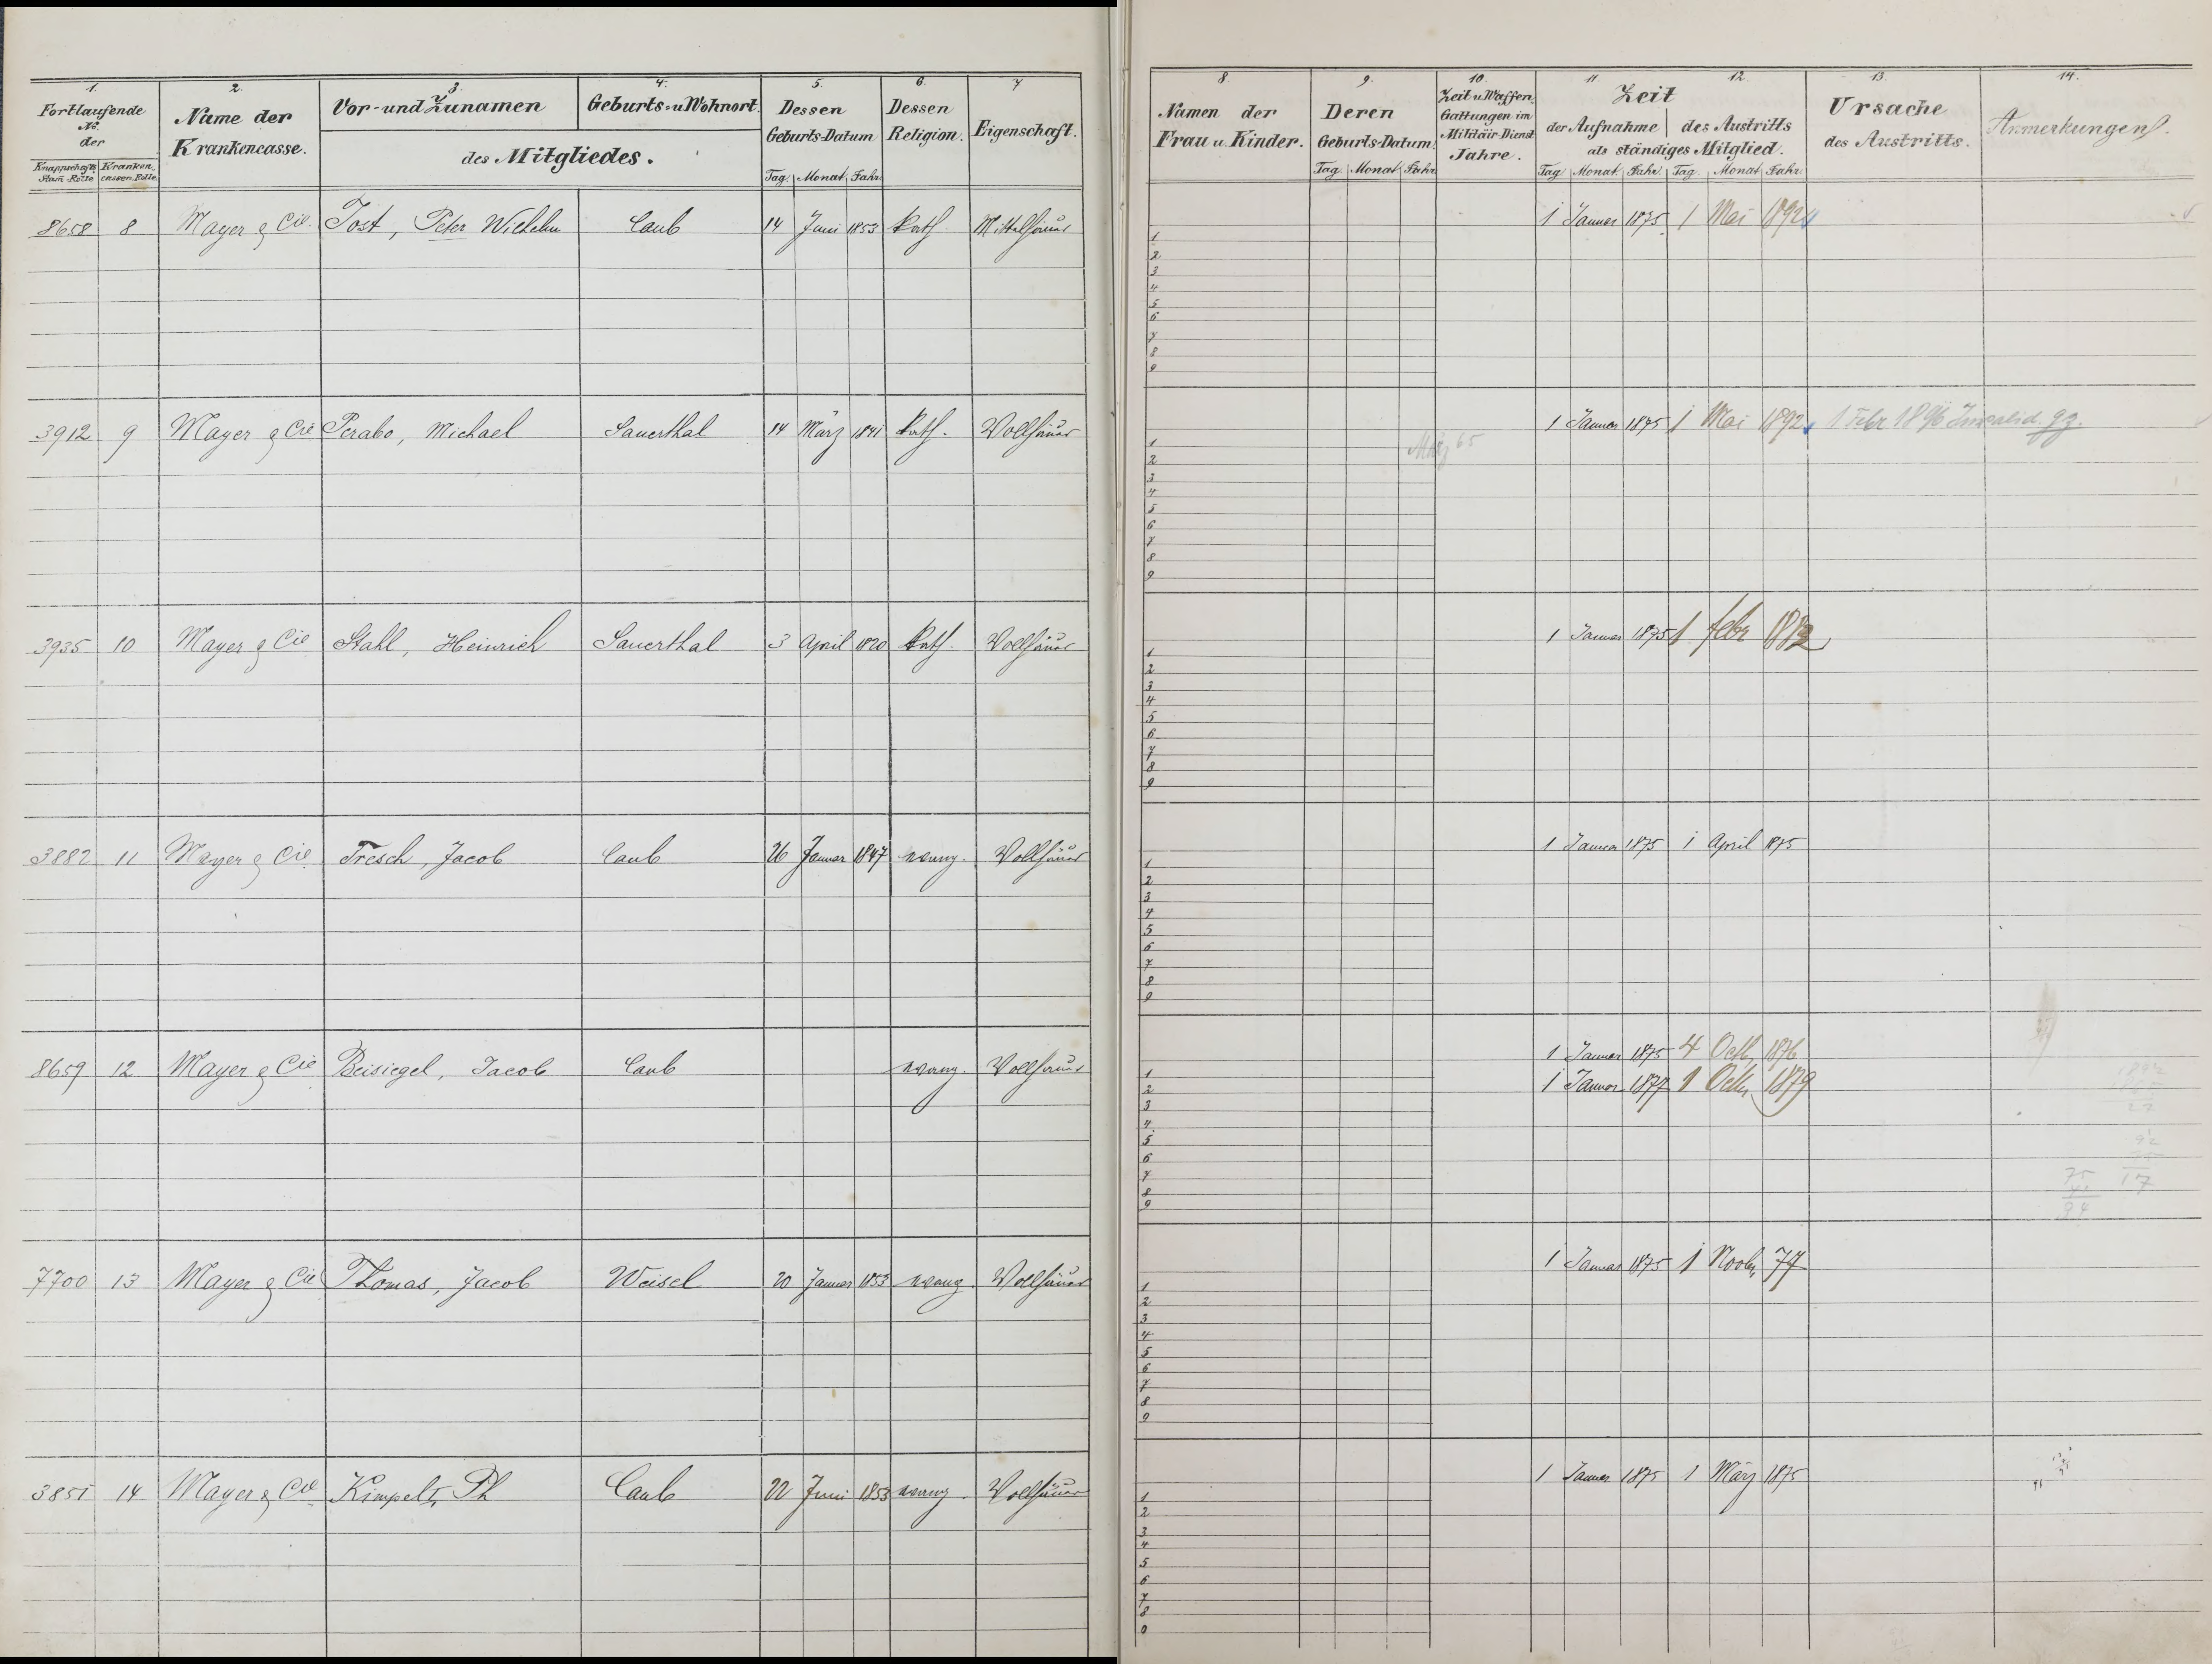 1. 2. 3. 4. 5. 6. 7
Fortlaufende No. der
Knappschafts Stam-Rolle Kranken cassen-Rolle
Name der Krankencasse.
Vor- und Zunamen Geburts- u Wohnort.
des Mitgliedes.
Dessen Geburts-Datum
Tag. Monat Jahr.
Dessen Religion.
Eigenschaft.
8658 8 Mayer & Cie. Jost, Peter Wilhelm Caub 14 Juni 1853 kath. Mittelhäuer
3912 9 Mayer & Cie Perabo, Michael Sauerthal 14 März 1841 kath. Vollhäuer
3935 10 Mayer & Cie Stahl, Heinrich Sauerthal 3 April 1820 kath. Vollhäuer
3882 11 Mayer & Cie Fresch, Jacob Caub 26 Januar 1847 evang. Vollhäuer
8659 12 Mayer & Cie Beisiegel, Jacob Caub evang. Vollhäuer
7700 13 Mayer & Cie Thomas, Jacob Weisel 20 Januar 1853 evang. Vollhäuer
3851 14 Mayer & Cie Kimpel, Ph Caub 22 Juni 1853 evang. Vollhäuer
8. 9. 10. 11. 12. 13. 14.
Namen der Frau u. Kinder.
Deren Geburts-Datum.
Tag. Monat Jahr.
Zeit u Waffen Gattungen im Militair-Dienst Jahre.
Zeit
der Aufnahme des Austritts
als ständiges Mitglied.
Tag Monat Jahr. Tag. Monat Jahr.
Ursache des Austritts.
Anmerkungen.
1 Januar 1875. 1 Mai 1892
1
2
3
4
5
6
7
8
9
1 Januar 1875 1 Mai 1892 1 Febr 1896 Invalid.
März 65
1
2
3
4
5
6
7
8
9
1 Januar 1875 1 febr
1
2
3
4
5
6
7
8
9
1 Januar 1875 1 April 1875
1
2
3
4
5
6
7
8
9
1 Januar 1875 4 Octb, 1876
1 Januar 1877 1 Octb, 1879
1
2
3
4
5
6
7
8
9
1 Januar 1875 1 Novbr, 77
1
2
3
4
5
6
7
8
9
1 Januar 1875 1 März 1875
1
2
3
4
5
6
7
8
9